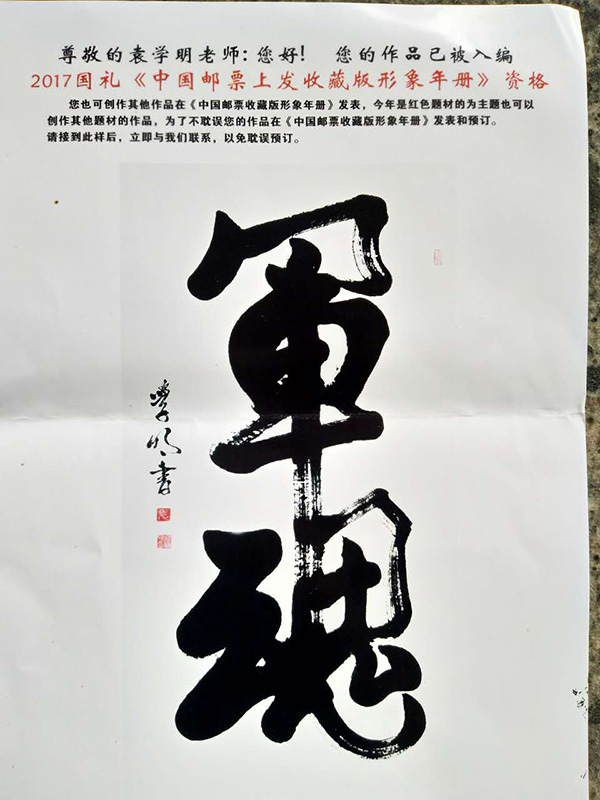 尊敬的袁学明老师:您好! 您的作品已被入编
2017国礼《中国邮票上发收藏版形象年册》资格
您也可创作其他作品在《中国邮票收藏版形象年册》发表，今年是红色题材的为主题也可以
创作其他题材的作品，为了不耽误您的作品在《中国邮票收藏版形象年册》发表和预订。
请接到此样后，立即与我们联系，以免耽误预订。
軍魂
學明書